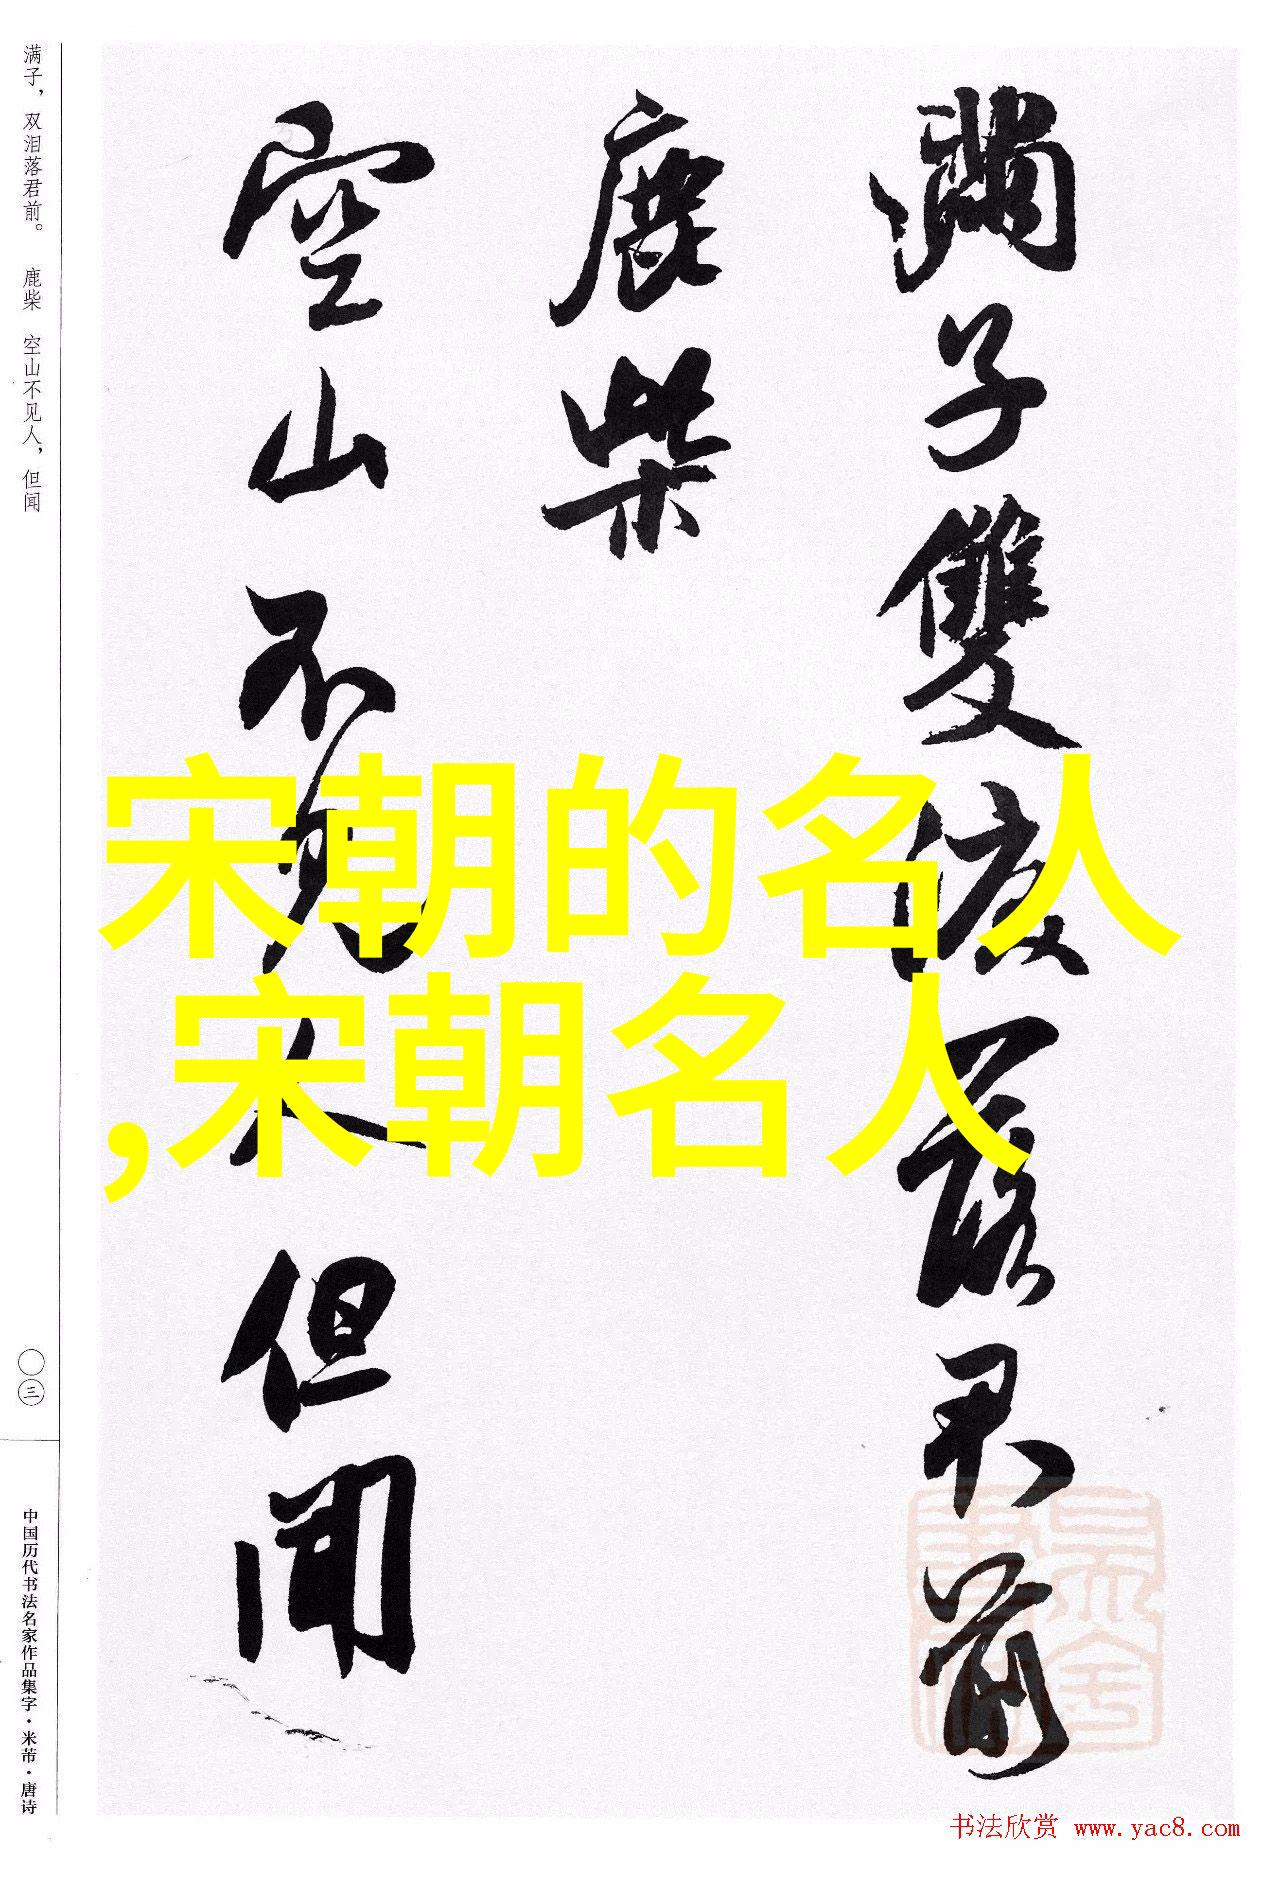 满子，双泪落君前。 鹿柴 空山不见人，但闻
滿子雙淚落君前
鹿柴
空山不見人但聞
宋朝的名人
,宋朝名人
三
中国历代书法名家作品集字·米芾·唐诗
书法欣赏 www.yac8.com